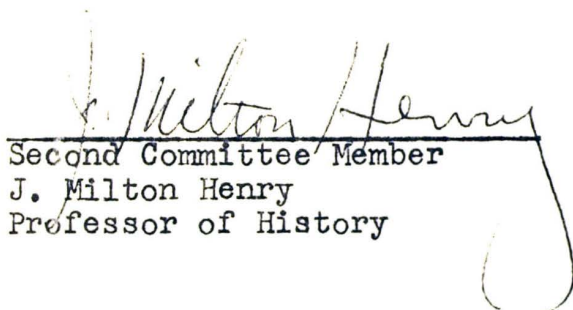 J. Milton Henry
Second Committee Member
J. Milton Henry
Professor of History